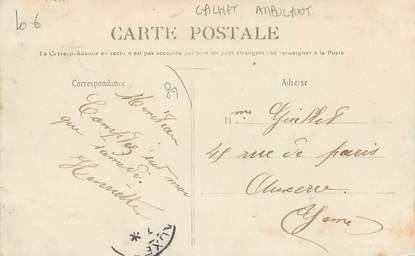 10 €
CACHET AMBULANT
CARTE POSTALE
La Correspondance au recto n'est pas acceptée par tous les pays étrangers (Se renseigner à la Poste)
Correspondance
Adresse
sur moi
que samedi.
Henriette
Mme Guillet
45 rue de Paris
Auxerre
Yonne